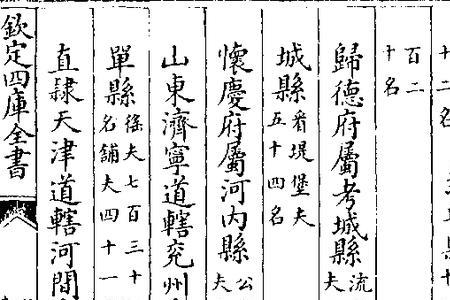 十二名
百二
十名
歸德府屬考城縣流
夫
城縣看堤堡夫
五十四名
懷慶府屬河内縣公
夫
山東濟寧道轄兖州
單縣徭夫七百三十
名舗夫四十一
直隷天津道轄河間
欽定四庫全書